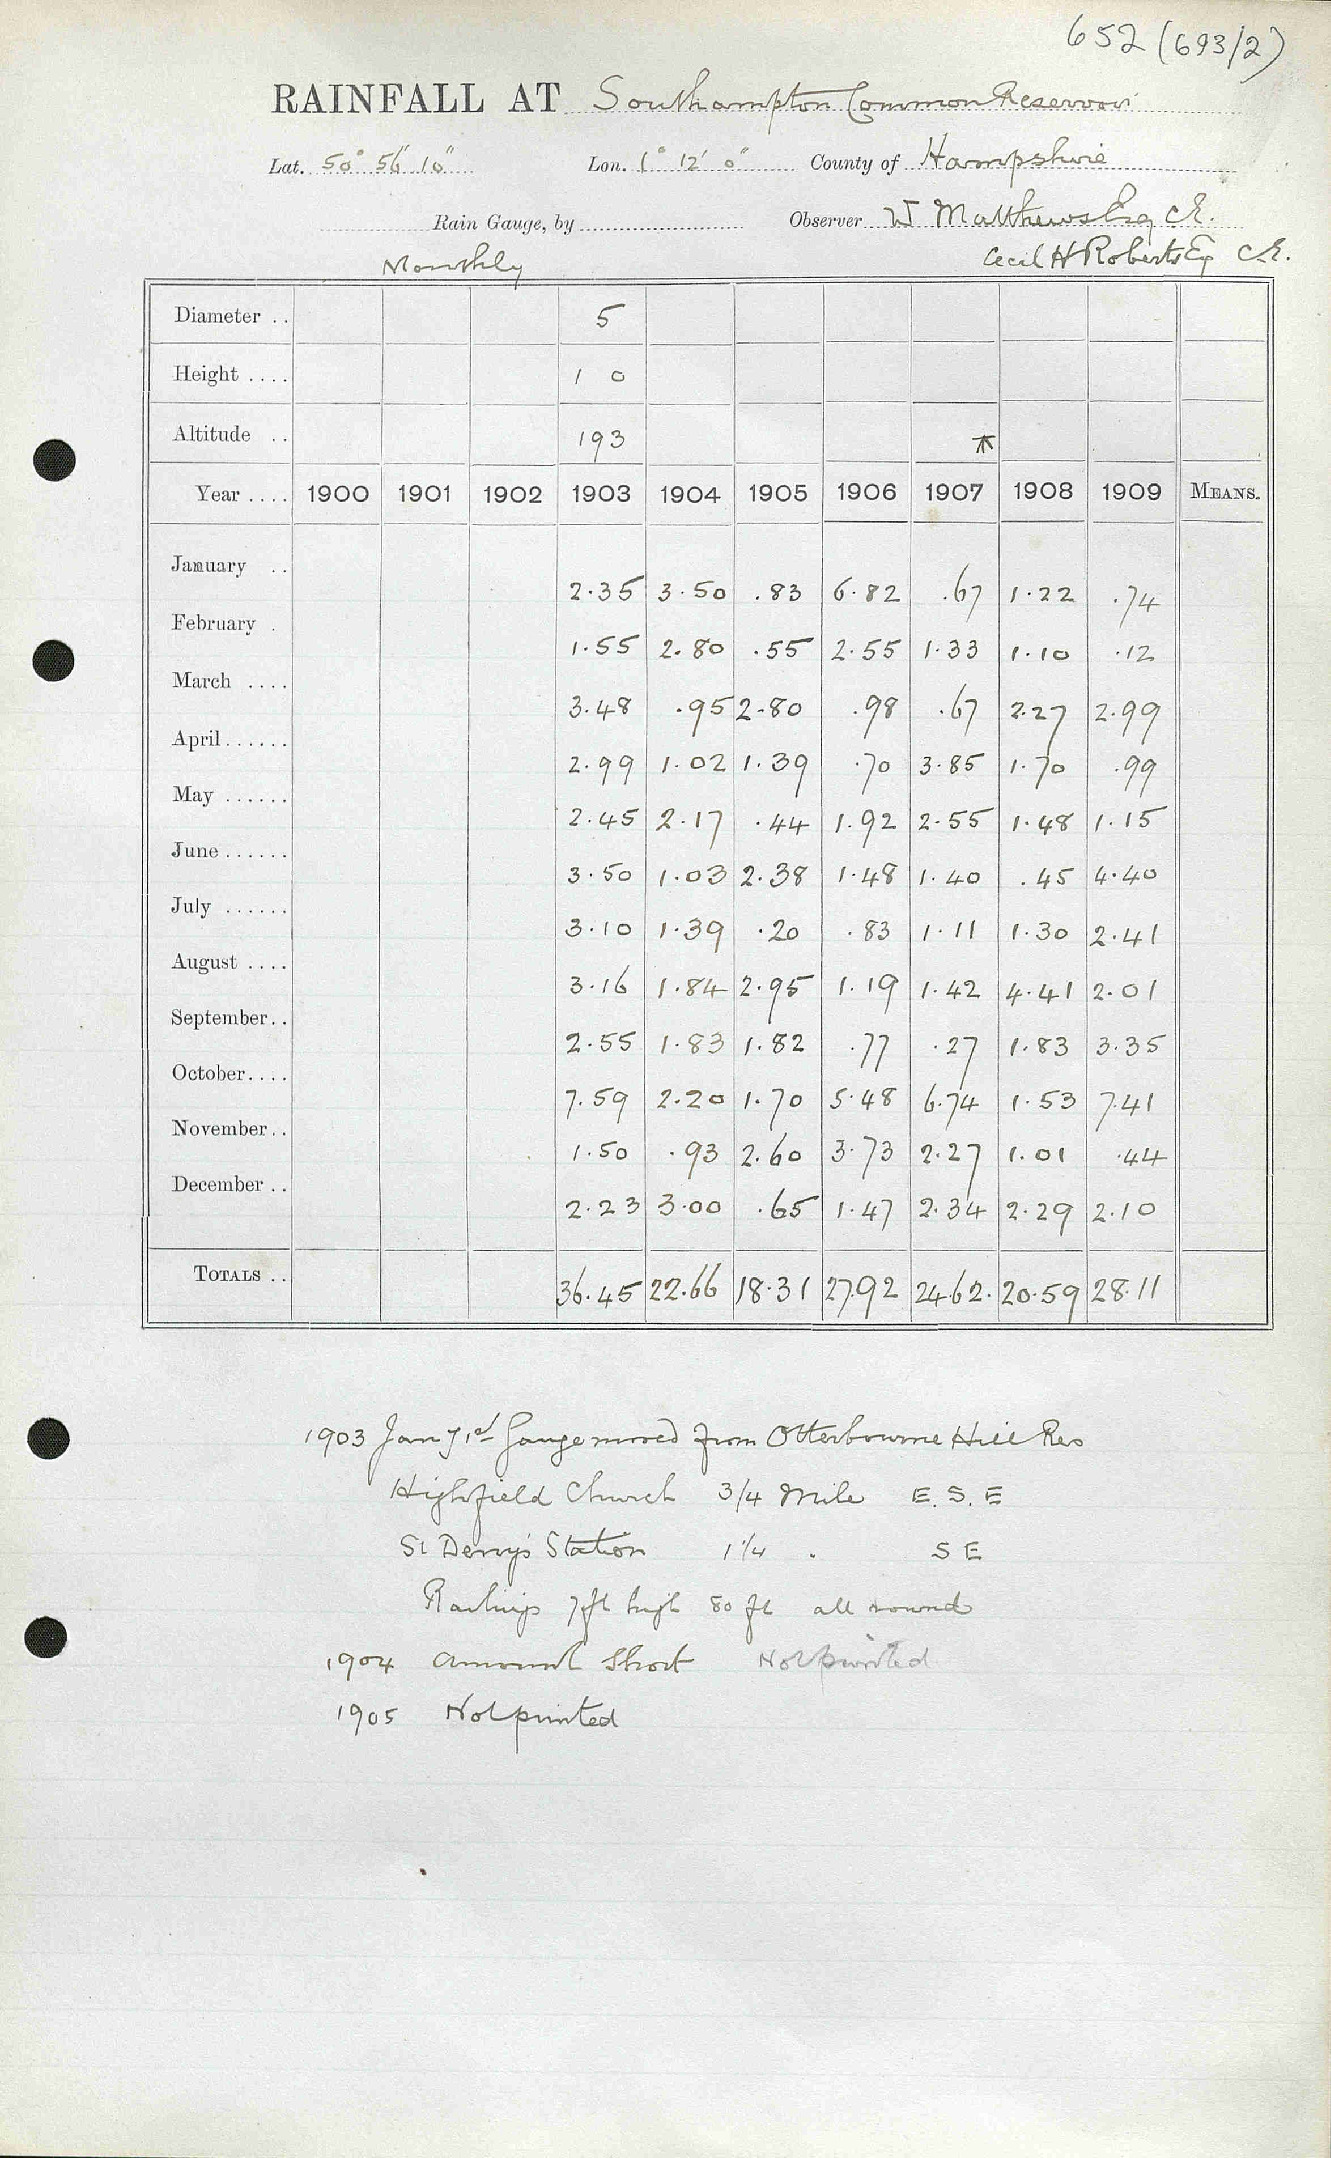 652 (693/2)
RAINFALL AT Southampton Common Reservoir
Lat. 50° 56' 10" Lon. 1° 12' 0" County of Hampshire
Rain Gauge, by Observer W Matthews Esq C.E.
Monthly Cecil H Roberts Esq C.E.
Diameter .. 5
Height .... 1 0
Altitude .. 193
Year .... 1900 1901 1902 1903 1904 1905 1906 1907 1908 1909 MEANS.
January .. 2.35 3.50 .83 6.82 .67 1.22 .74
February . 1.55 2.80 .55 2.55 1.33 1.10 .12
March .... 3.48 .95 2.80 .98 .67 2.27 2.99
April...... 2.99 1.02 1.39 .70 3.85 1.70 .99
May ...... 2.45 2.17 .44 1.92 2.55 1.48 1.15
June...... 3.50 1.03 2.38 1.48 1.40 .45 4.40
July ...... 3.10 1.39 .20 .83 1.11 1.30 2.41
August .... 3.16 1.84 2.95 1.19 1.42 4.41 2.01
September.. 2.55 1.83 1.82 .77 .27 1.83 3.35
October.... 7.59 2.20 1.70 5.48 6.74 1.53 7.41
November.. 1.50 .93 2.60 3.73 2.27 1.01 .44
December .. 2.23 3.00 .65 1.47 2.34 2.29 2.10
TOTALS .. 36.45 22.66 18.31 27.92 24.62. 20.59 28.11
1903 Jany 1st Gauge moved from Otterbourne Hill Res
Highfield Church 3/4 Mile E. S. E
St Deny's Station 1 1/4 " S E
Railings 7ft high 80 ft all round
1904 Amount Short Not printed
1905 Not printed